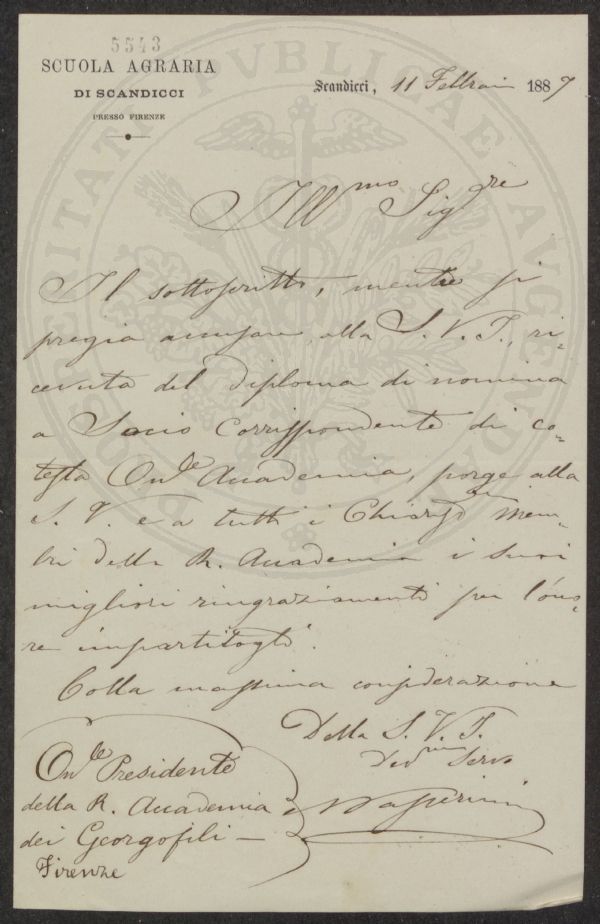 5543
SCUOLA AGRARIA
DI SCANDICCI
PRESSO FIRENZE
Scandicci, 11 Febbraio 1887
Ill.mo Sig.re
Il sottoscritto, mentre si
pregia accusare alla S. V. I., ri-
cevuta del diploma di nomina
a Socio Corrispondente di co-
testa On.le Accademia, porge alla
S. V. e a tutti i Chiar.mi Mem-
bri della R. Accademia i suoi
migliori ringraziamenti per l'ono-
re impartitogli.
Colla massima considerazione
Della S. V. I.
Dev.mo Servo
On.le Presidente
della R. Accademia
dei Georgofili —
Firenze
PROSPERITATI PVBLICAE AVGENDAE